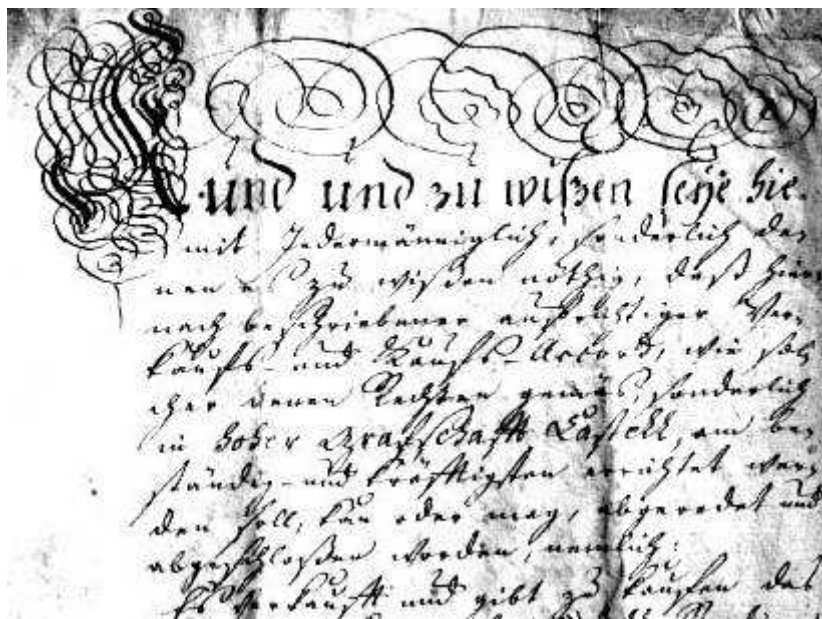 Kund und zu wißen seye hie-
mit Jedermänniglich, sonderlich de-
nen es zu wißen nöthig, daß hier-
nach beschriebener aufrichtiger Ver-
kaufs- und Kaufs-Accord, wie sol-
cher denen Rechten gemäs, sonderlich
in hoher Grafschafft Castell, am be-
ständig- und kräfftigsten errichtet wer-
den soll, kan oder mag, abgeredet und
abgeschloßen worden, nemlich:
Es verkaufft und gibt zu kaufen das